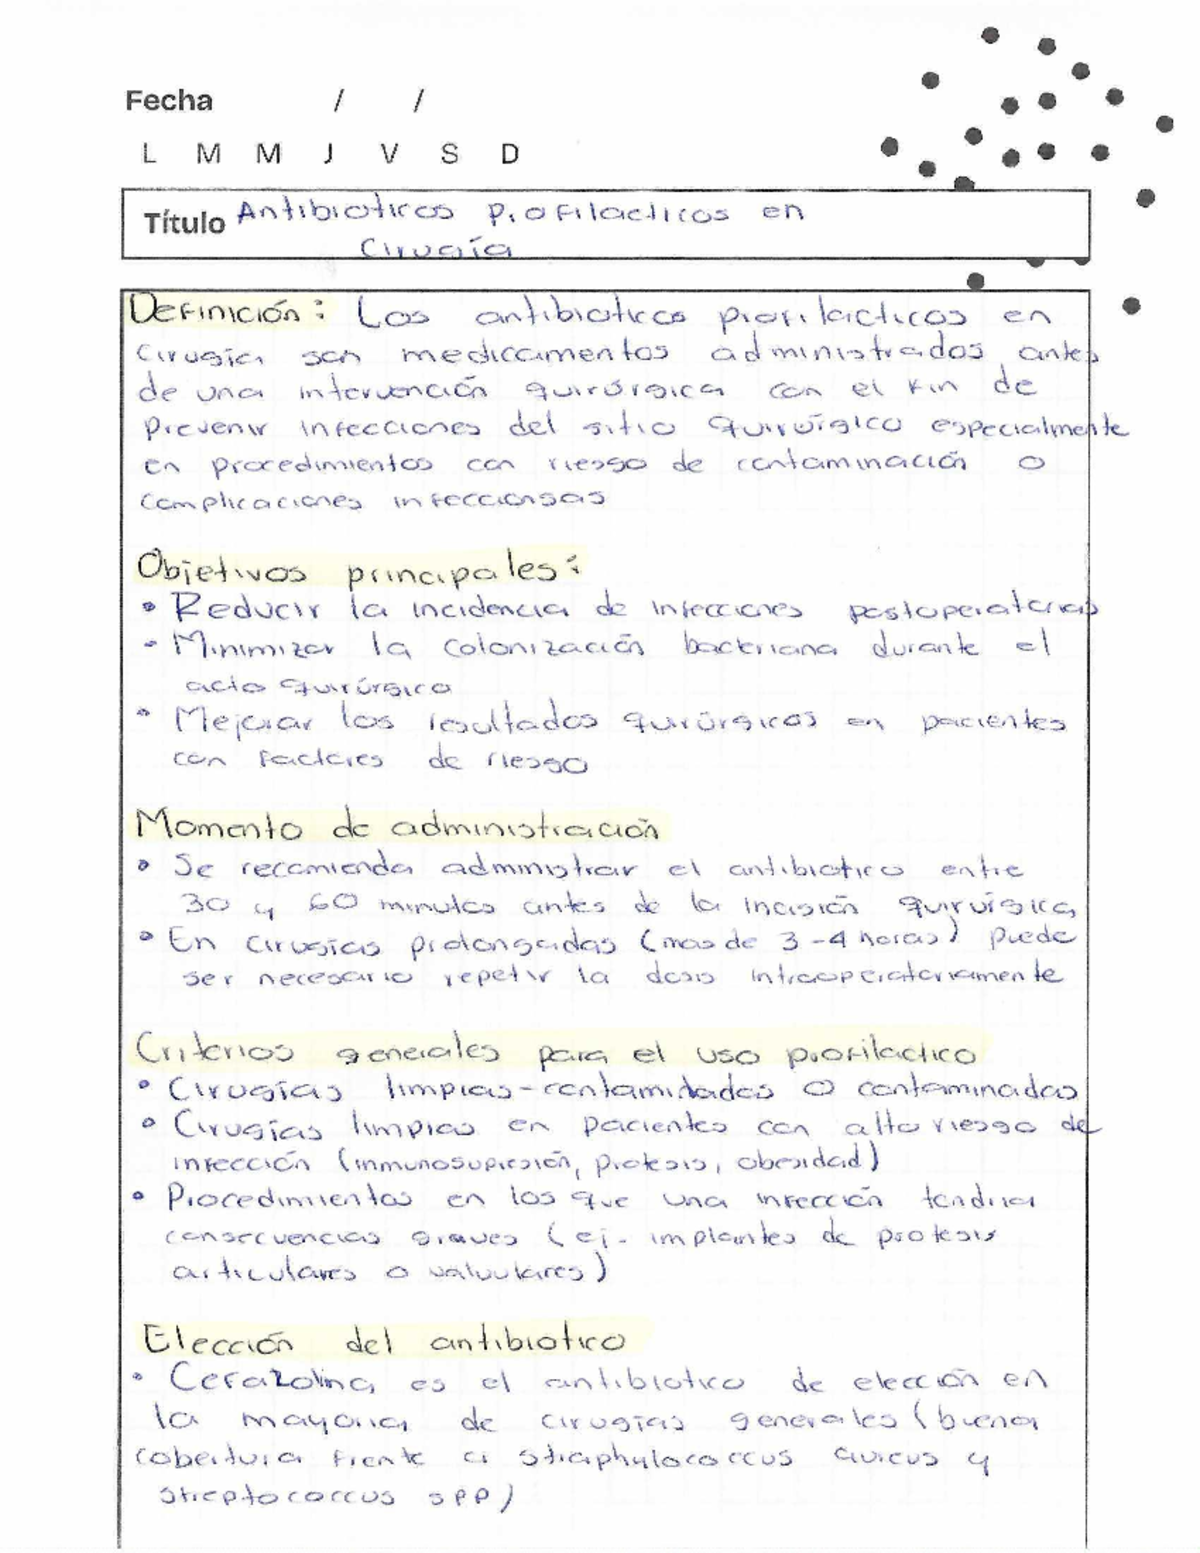 Fecha / /
L M M J V S D
Título Antibioticos profilacticos en
Cirugía
Definición: Los antibioticos profilacticos en
cirugía son medicamentos administrados antes
de una intervención quirúrgica con el fin de
prevenir infecciones del sitio quirúrgico especialmente
en procedimientos con riesgo de contaminación o
complicaciones infecciosas
Objetivos principales:
• Reducir la incidencia de infecciones postoperatorias
• Minimizar la colonización bacteriana durante el
acto quirúrgico
• Mejorar los resultados quirúrgicos en pacientes
con factores de riesgo
Momento de administración
• Se recomienda administrar el antibiotico entre
30 y 60 minutos antes de la incisión quirurgica
• En cirugías prolongadas (mas de 3-4 horas) puede
ser necesario repetir la dosis intraoperatoriamente
Criterios generales para el uso profilactico
• Cirugías limpias-contamidadas o contaminadas
• Cirugías limpias en pacientes con alto riesgo de
infección (inmunosupresión, protesis, obesidad)
• Procedimientos en los que una infección tendria
consecuencias graves (ej. implantes de protesis
articulares o valvulares)
Elección del antibiotico
• Cefazolina es el antibiotico de elección en
la mayoria de cirugías generales (buena
cobertura frente a straphylococcus aureus y
streptococcus spp)